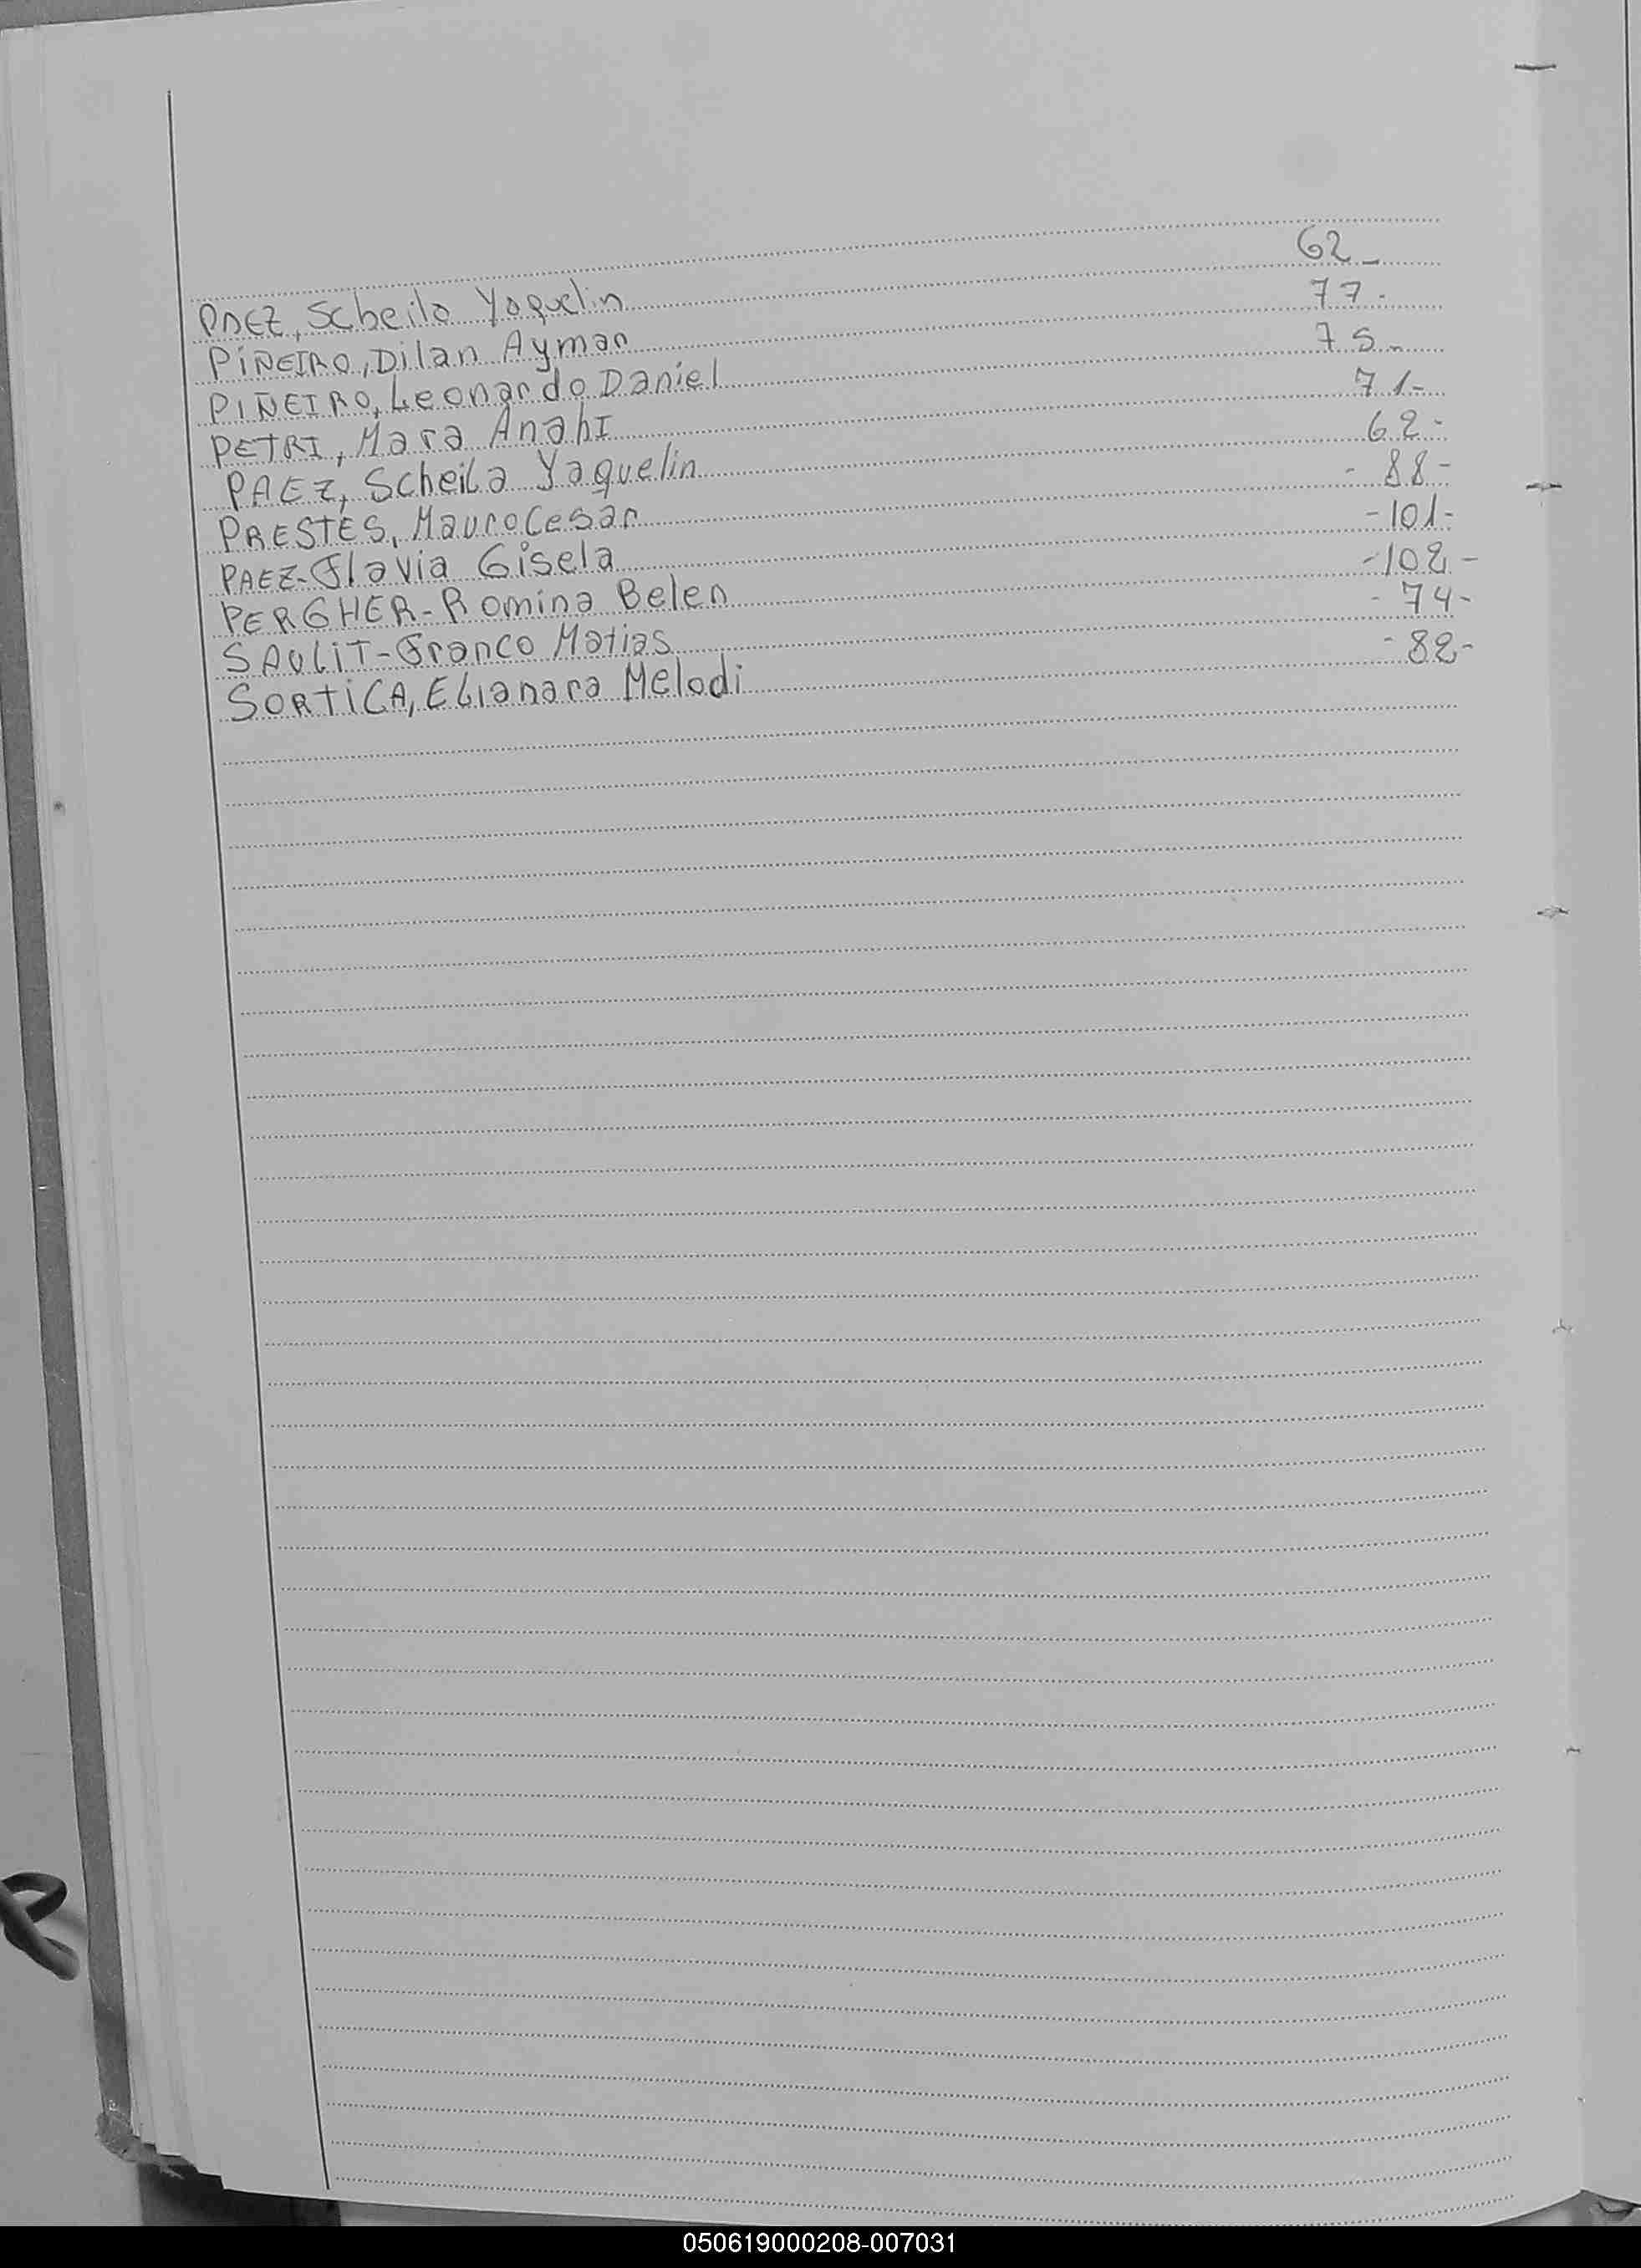 PAEZ, Scheila Yaquelin 62-
PIÑEIRO, Dilan Ayman 77-
PIÑEIRO, Leonardo Daniel 75-
PETRI, Mara AnahI 71-
PAEZ, Scheila Yaquelin 62-
PRESTES, Mauro Cesar - 88-
PAEZ-Flavia Gisela -101-
PERGHER-Romina Belen -102-
SAULIT-Franco Matias - 74-
SORTICA, Elianara Melodi - 82-
050619000208-007031